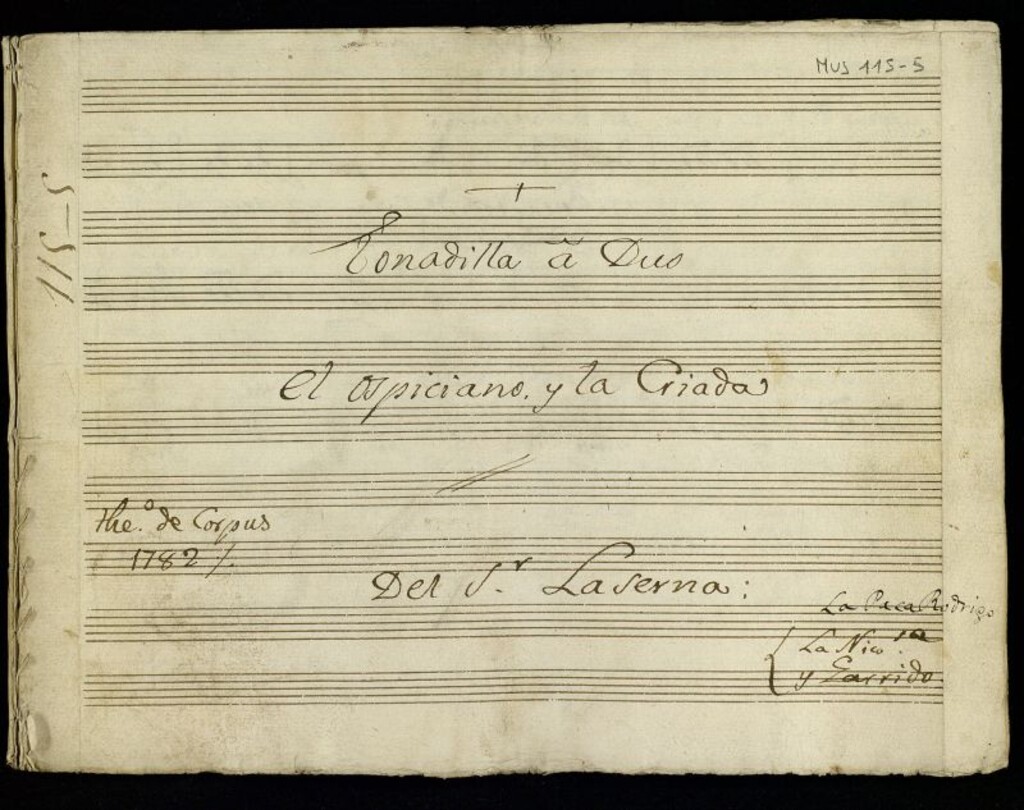 Mus 115-5
115-5
+
Tonadilla â Duo
El ospiciano. y la Criada
the.º de Corpus
1782 /.
Del S.r Laserna:
La Paca Rodrigo
La Nico.sa
y Garrido.